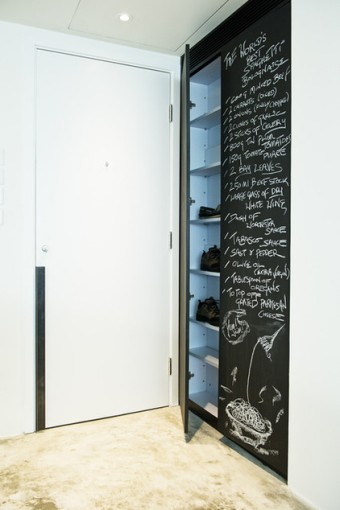 THE WORLD'S
BEST
SPAGHETTI
BOLOGNAISE
600g MINCED BEEF
2 CARROTS (DICED)
2 ONIONS (FINELY CHOPPED)
2 CLOVES OF GARLIC
2 STICKS OF CELERY
800g TIN PLUM
TOMATOES
150g TOMATO PUREE
2 BAY LEAVES
250 ml BEEF STOCK
LARGE GLASS OF DRY
WHITE WINE
DASH OF
WORCESTER
SAUCE
TABASCO SAUCE
SALT & PEPPER
OLIVE OIL
TABLESPOON OF
OREGANO
TO TOP OFF
GRATED PARMISAN
CHEESE